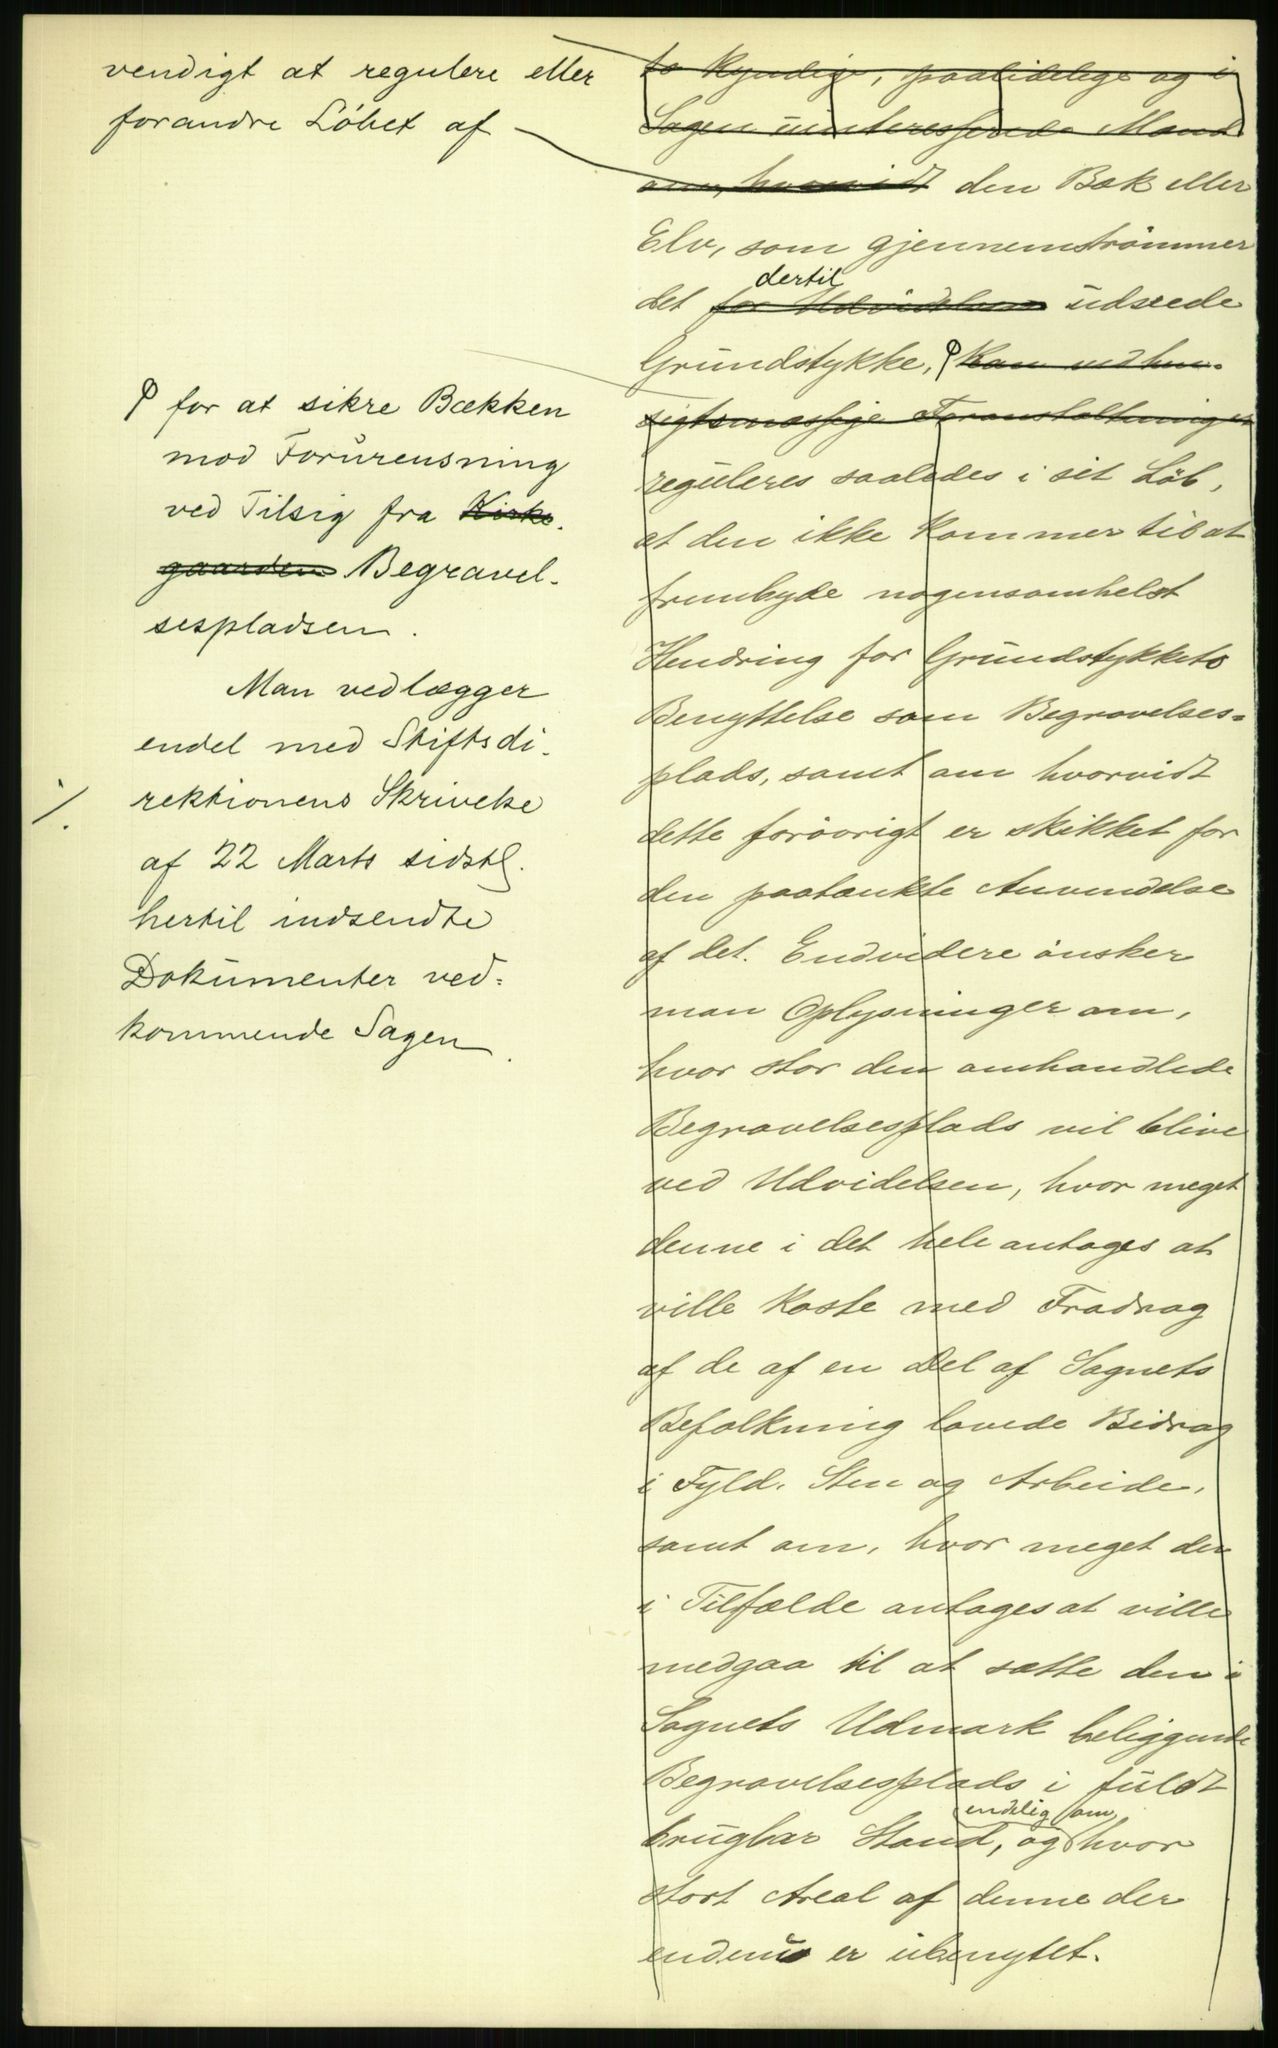 vendigt at regulere eller
forandre Löbet af
ꝗ for at sikre Bækken
mod Forurensning
ved Tilsig fra Kirke-
gaarden Begravel-
sespladsen.
Man vedlægger
endel med Stiftsdi-
rektionens Skrivelse
af 22 Marts sidstl.
hertil indsendte
Dokumenter ved=
kommende Sagen.
·/.
to kyndige, paalidelige og i
Sagen uinteresserede Mænd
om, hvorvidt den Bæk eller
Elv, som gjennemströmmer
dertil
det for Udvidelsen udseede
Grundstykke, ꝗ kan ved hen-
sigtsmæssige Foranstaltninger
reguleres saaledes i sit Löb,
at den ikke kommer til at
frembyde nogensomhelst
Hindring for Grundstykkets
Benyttelse som Begravelses=
plads, samt om hvorvidt
dette forövrigt er skikket for
den paatænkte Anvendelse
af det. Endvidere önsker
man Oplysninger om,
hvor stor den omhandlede
Begravelsesplads vil blive
ved Udvidelsen, hvor meget
denne i det hele antages at
ville koste med Fradrag
af de af en Del af Sognets
Befolkning lovede Bidrag
i Fyld, Sten og Arbeide,
samt om, hvor meget der
i Tilfælde antages at ville
medgaa til at sætte den i
Sognets Udmark beliggende
Begravelsesplads i fuldt
endelig om
brugbar Stand, og hvor
stort Areal af denne der
endnu er ubenyttet.